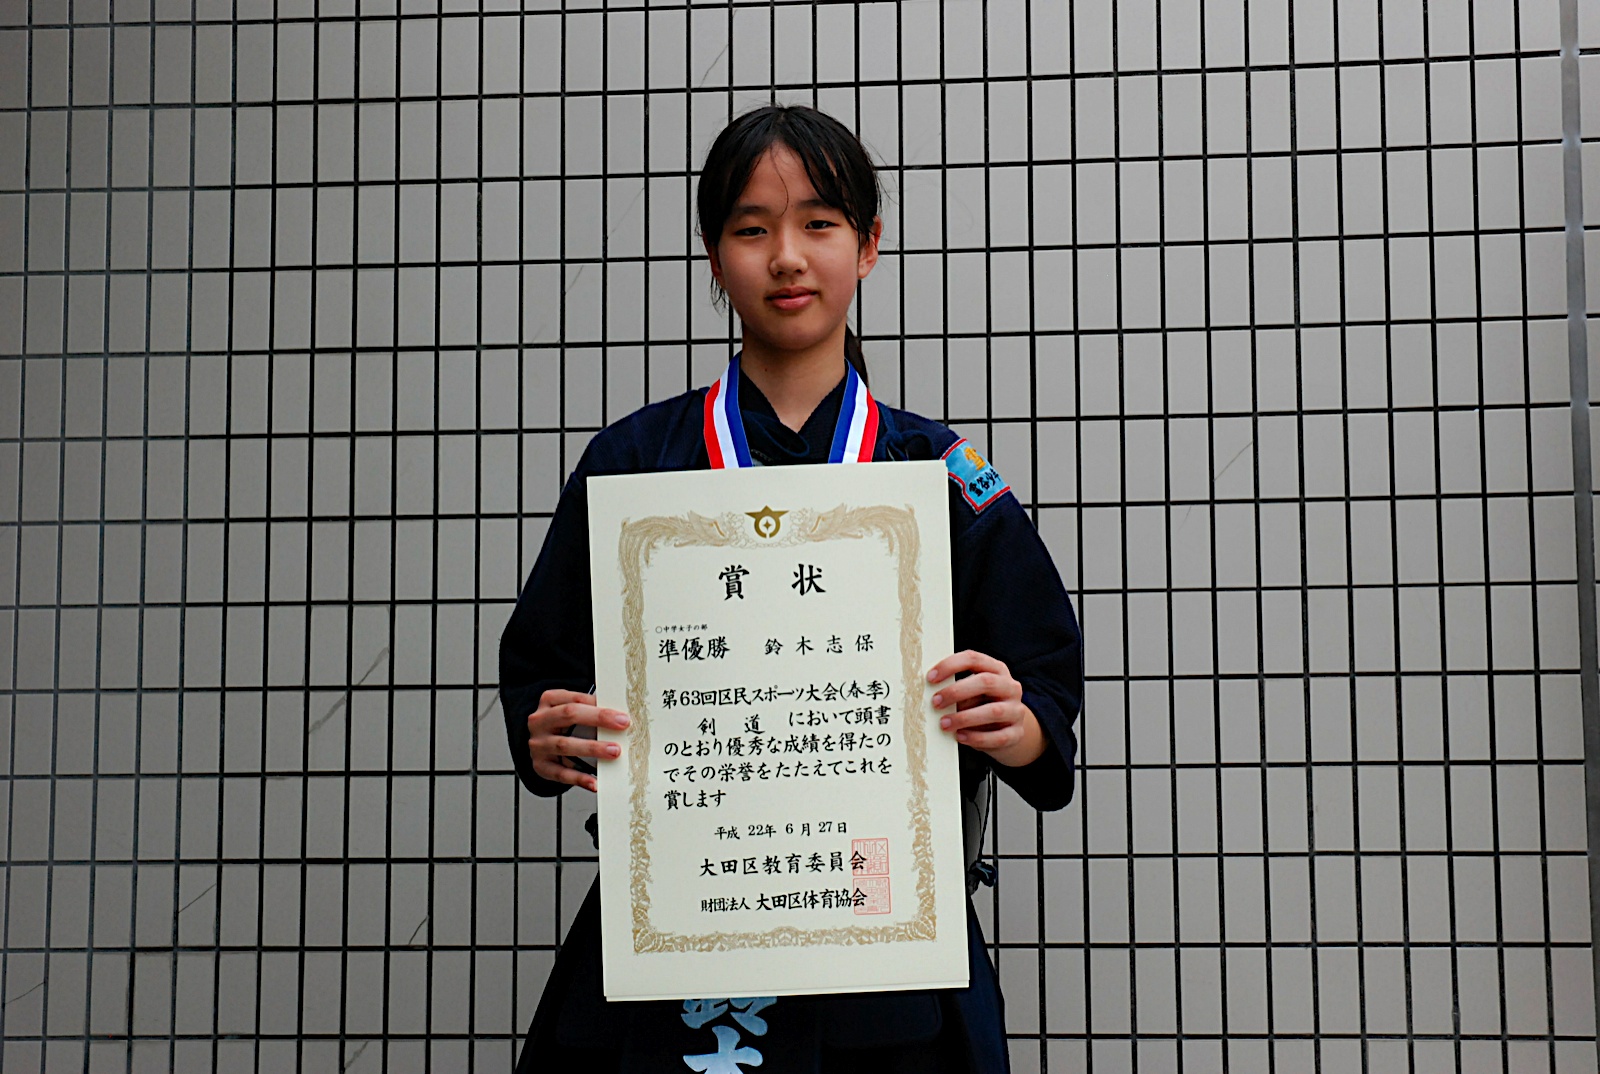 賞状
○中学女子の部
準優勝 鈴木志保
第63回区民スポーツ大会(春季)
剣道において頭書
のとおり優秀な成績を得たの
でその栄誉をたたえてこれを
賞します
平成 22年 6月 27日
大田区教育委員会
財団法人 大田区体育協会
鈴木